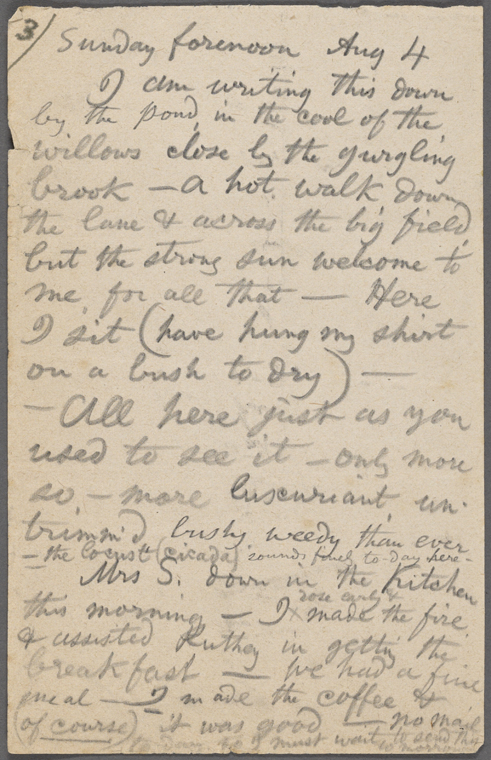 3
Sunday forenoon Aug 4
I am writing this down
by the pond, in the cool of the
willows close by the gurgling
brook — a hot walk down
the lane & across the big field
but the strong sun welcome to
me, for all that — Here
I sit (have hung my shirt
on a bush to dry) —
— All here just as you
used to see it — only more
so — more luscuriant, un-
trimm'd bushy weedy than ever
— the locust (cicada) sounds fine to-day here —
Mrs S. down in the Kitchen
rose early &
this morning — I made the fire
& assisted Ruthey in getting the
breakfast — We had a fine
meal — I made the coffee &
(of course) it was good — no mail
to day so I must wait to send this
to morrow